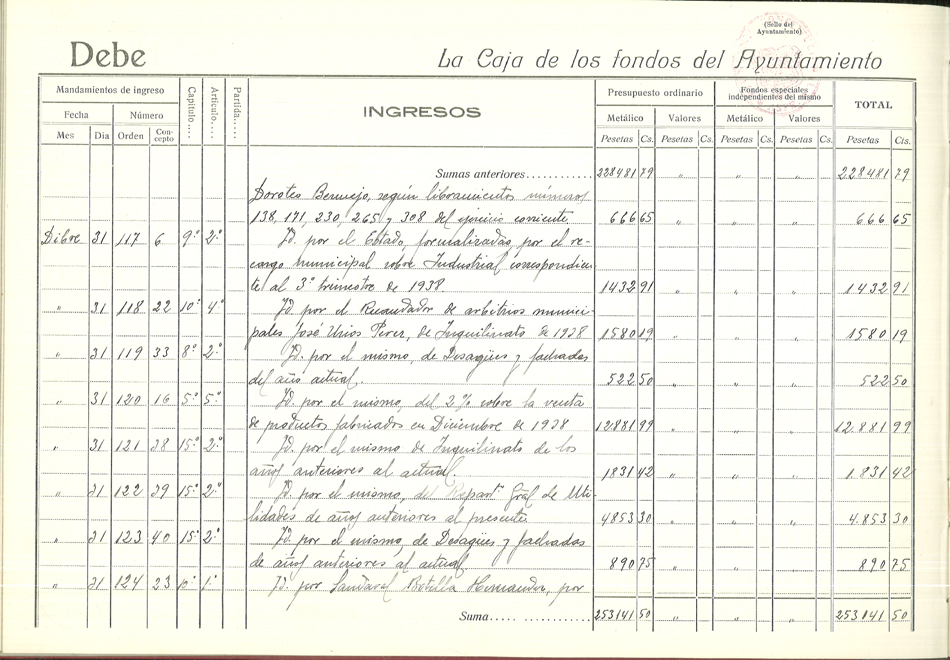 (Sello del
Ayuntamiento)
Debe
La Caja de los fondos del Ayuntamiento
Mandamientos de ingreso
Capítulo....
Artículo....
Partida.....
INGRESOS
Presupuesto ordinario
Fondos especiales
independientes del mismo
TOTAL
Fecha Número
Metálico Valores Metálico Valores
Mes Dia Orden Con-
cepto
Pesetas Cs. Pesetas Cs. Pesetas Cs. Pesetas Cs. Pesetas Cts.
Sumas anteriores............ 228481 79 " " " 228481 79
Dorotea Bermejo, según libramientos números
138, 171, 230, 265 y 308 del ejercicio corriente. 666 65 " " " 666 65
Dibre 31 117 6 9º 2º Id. por el Estado, formalizadas, por el re-
cargo municipal sobre Industrial correspondien-
te al 3º trimestre de 1938. 1432 91 " " " 1432 91
" 31 118 22 10º 4º Id. por el Recaudador de arbitrios munici-
pales José Urios Pérez, de Inquilinato de 1938 1580 19 " " " 1580 19
" 31 119 33 8º 2º Id. por el mismo, de Desagües y fachadas
del año actual. 522 50 " " " 522 50
" 31 120 16 5º 5º Id. por el mismo, del 2% sobre la venta
de productos fabricados en Diciembre de 1938 12.881 99 " " " 12.881 99
" 31 121 38 15º 2º Id. por el mismo de Inquilinato de los
años anteriores al actual. 1831 42 " " " 1.831 42
" 31 122 39 15º 2º Id. por el mismo, del Repart. Gral de Uti-
lidades de años anteriores al presente. 4853 30 " " " 4.853 30
" 31 123 40 15º 2º Id. por el mismo, de Desagües y fachadas
de años anteriores al actual. 890 75 " " " 890 75
" 31 124 23 10º 1º Id. por Botella Hernandez, por
Suma..... ............ 253141 50 " " " 253141 50